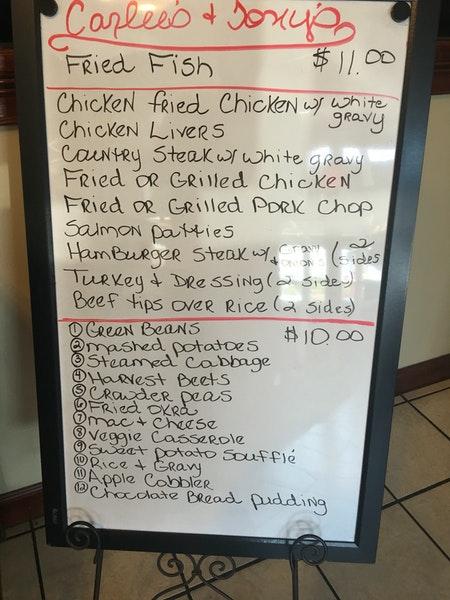 Carlee's + Tony's
Fried Fish $11.00
Chicken fried Chicken w/ white gravy
Chicken Livers
Country Steak w/ white gravy
Fried or Grilled Chicken
Fried or Grilled Pork Chop
Salmon Patties
Hamburger Steak w/ Gravy + onions (2 sides
Turkey + Dressing (2 sides)
Beef tips over Rice (2 sides)
① Green Beans $10.00
② mashed potatoes
③ Steamed Cabbage
④ Harvest Beets
⑤ Crowder peas
⑥ Fried okra
⑦ mac + cheese
⑧ Veggie Casserole
⑨ Sweet potato Soufflé
⑩ Rice + Gravy
⑪ Apple Cobbler
⑫ Chocolate Bread pudding